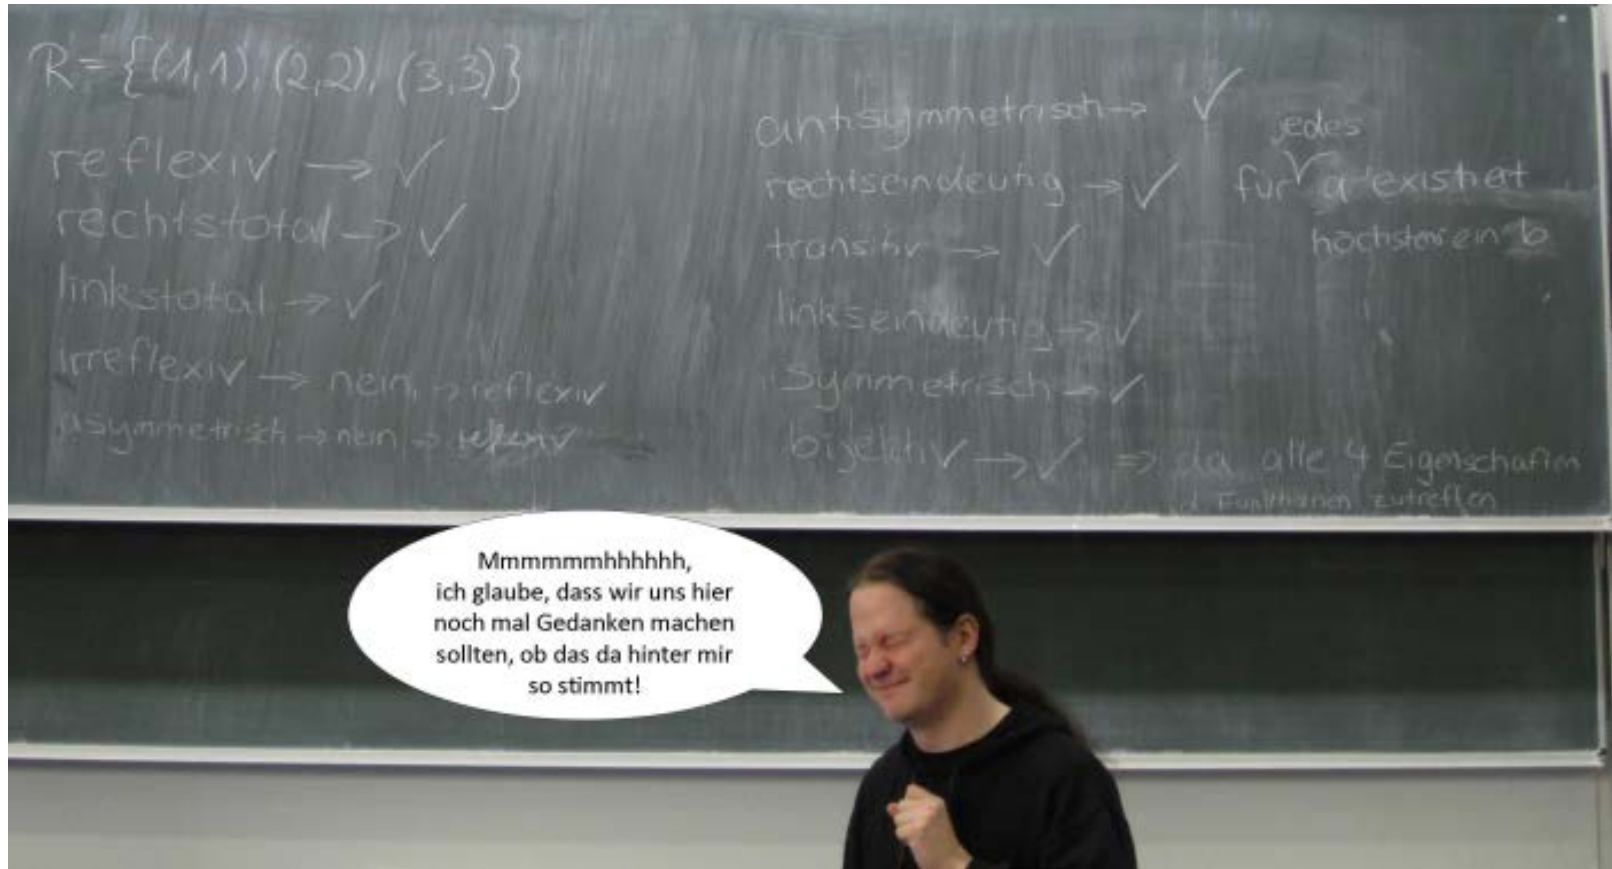 R={(1,1),(2,2),(3,3)}
reflexiv → ✓
rechtstotal → ✓
linkstotal → ✓
irreflexiv → nein, → reflexiv
asymmetrisch → nein →
antisymmetrisch → ✓
rechtseindeutig → ✓
jedes
für a existiert
höchstens ein b
transitiv → ✓
linkseindeutig → ✓
Symmetrisch → ✓
bijektiv → ✓ ⇒ da alle 4 Eigenschaften
Funktionen zutreffen
Mmmmmmhhhhhh,
ich glaube, dass wir uns hier
noch mal Gedanken machen
sollten, ob das da hinter mir
so stimmt!